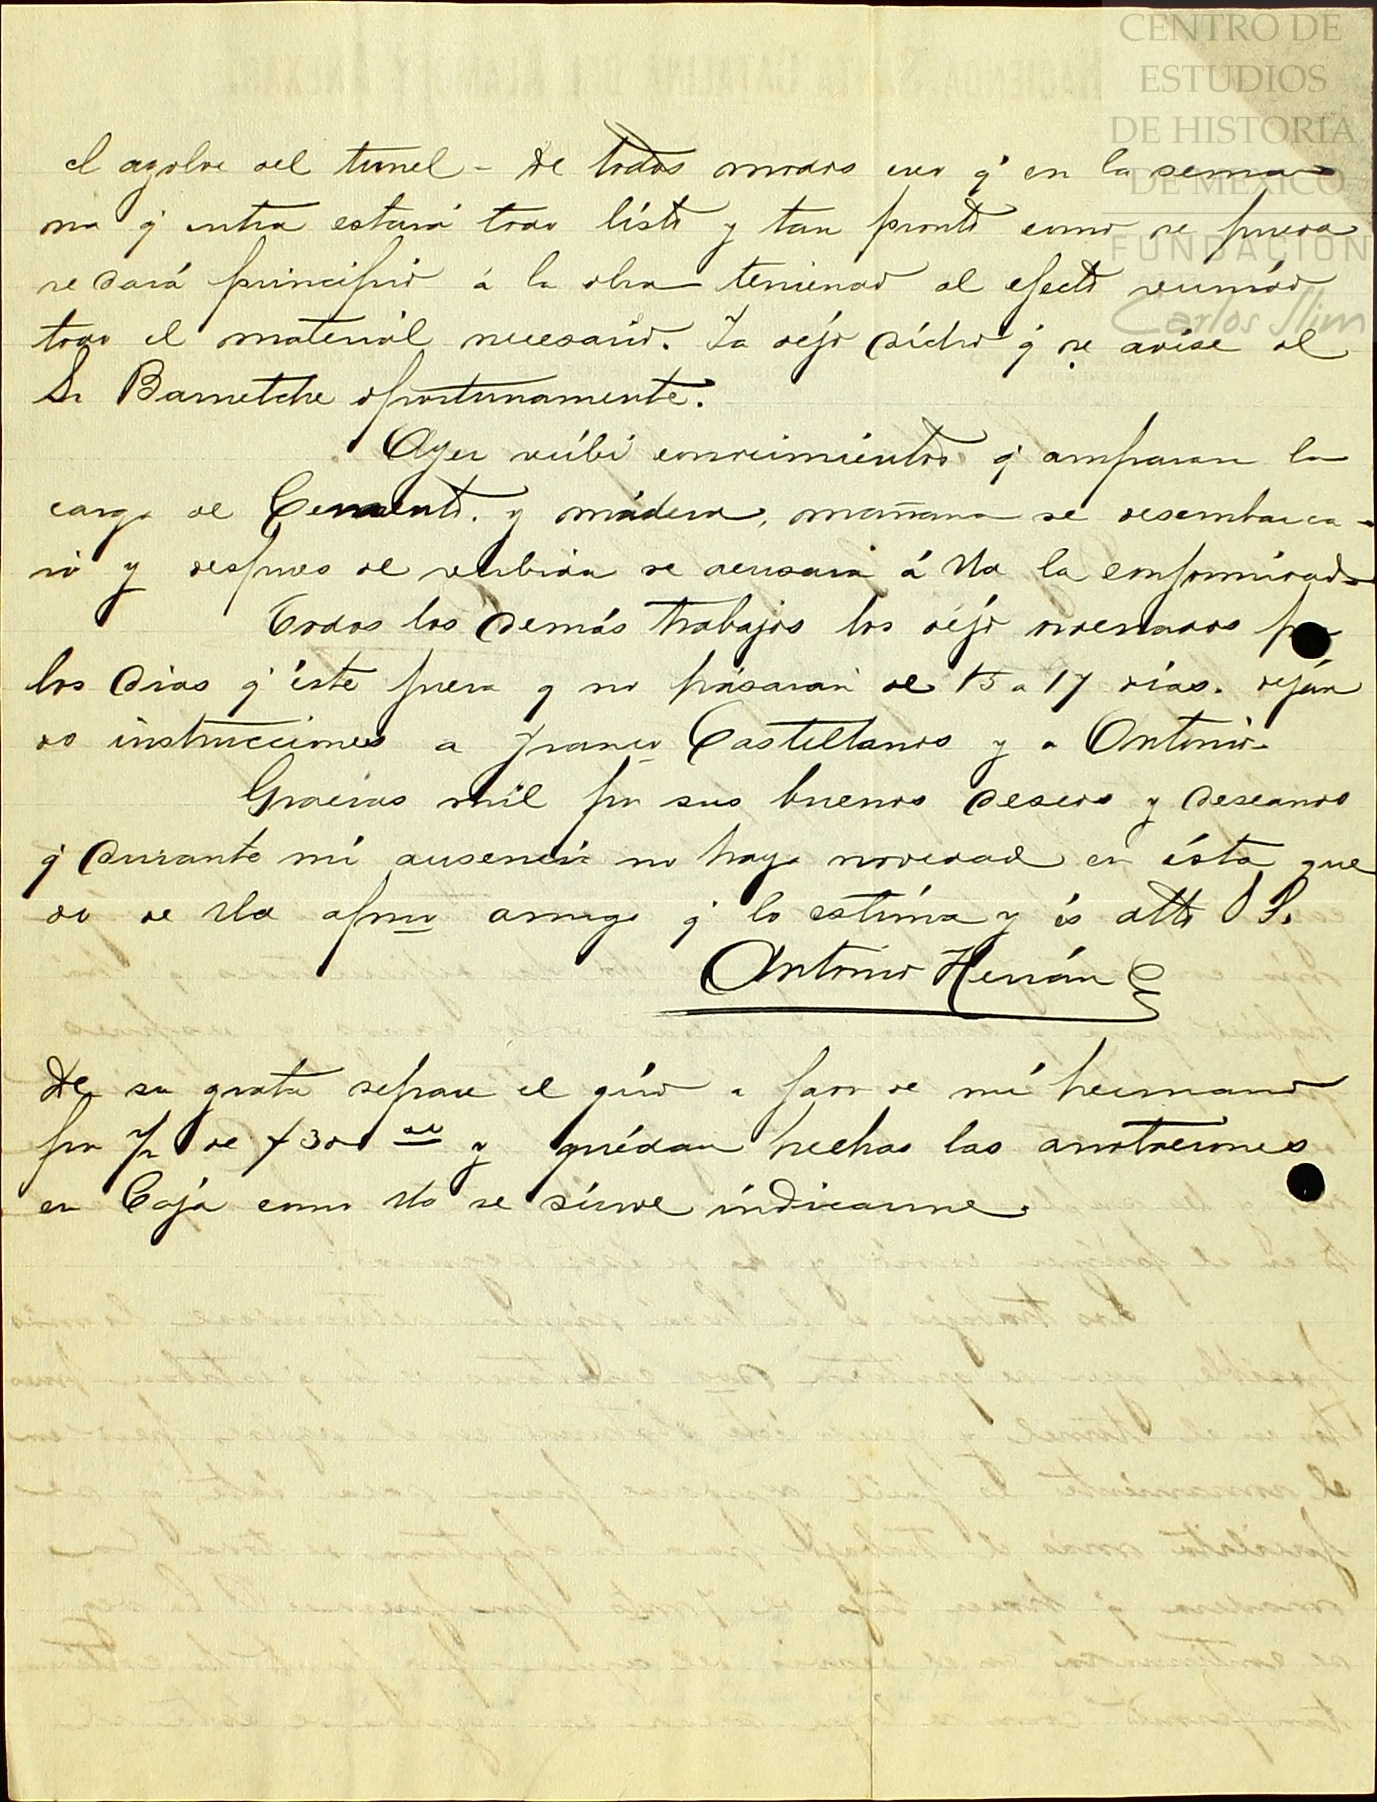 CENTRO DE
ESTUDIOS
DE HISTORIA
DE MEXICO
FUNDACIÓN
Carlos Slim
el azolve del tunel - De todos modos creo q' en la sema
na q' entra estará todo listo y tan pronto como se pueda
se dará principio á la obra teniendo al efecto reunido
todo el material necesario. Ya dejo dicho q' se avise al
Sr Barnetche oportunamente.
Ayer recibí conocimientos q' amparan la
carga de Cemento. y madera, mañana se desembarca-
rá y despues de recibida se avisará á Ud la conformidad-
Todos los demás trabajos los dejo ordenados por
los dias q' éste fuera q' no pásaran de 15 a 17 dias. deján
do instrucciones a Franco Castellanos y a Antonio.
Gracias mil por sus buenos deseos y deseando
q' durante mi ausencia no haya novedad en ésta que
do de Ud afmo amigo q' lo estima y és atto S S.
Antonio Herrán
De su grata separe el giro a favor de mi hermano
por de $ 300 00 y quédan hechas las anotaciones
en Caja como Ud se sirve indicarme.